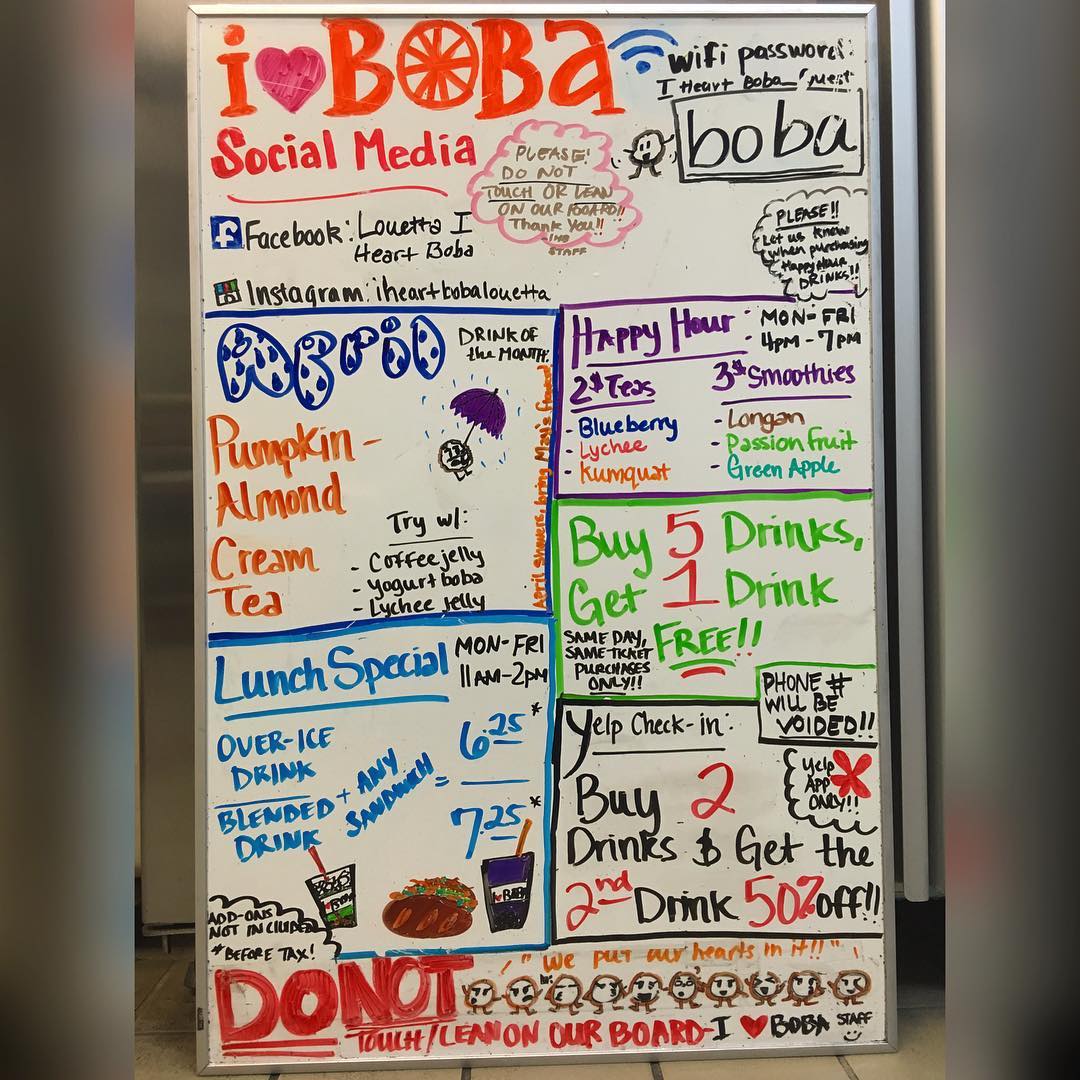 i BOBA
wifi password:
I Heart Boba
boba
Social Media
PLEASE!
DO NOT
TOUCH OR LEAN
ON OUR BOARD!!
Thank You!!
-IHB
STAFF
Facebook: Louetta I
Heart Boba
Instagram: iheartbobalouetta
PLEASE!!
Let us know
when purchasing
Happy Hour
DRINKS!!
April
DRINK OF
the MONTH:
Pumpkin-
Almond
Cream
Tea
Try w/:
- Coffee jelly
- Yogurt boba
- Lychee jelly
April showers, bring May's flowers!
Happy Hour:
MON-FRI
4PM-7PM
2$ Teas
- Blueberry
- Lychee
- Kumquat
3$ Smoothies
- Longan
- Passion fruit
- Green Apple
Buy 5 Drinks,
Get 1 Drink
FREE!!
SAME DAY,
SAME TICKET
PURCHASES
ONLY!!
Lunch Special
MON-FRI
11AM-2PM
OVER-ICE
DRINK
BLENDED
DRINK
+ ANY
SANDWICH
=
6.25*
7.25*
I BOBA
ADD-ONS
NOT INCLUDED
*BEFORE TAX!
PHONE #
WILL BE
VOIDED!!
Yelp Check-in:
Yelp
APP
ONLY!!
Buy 2
Drinks $ Get the
2nd Drink 50% off!!
"We put our hearts in it!!"
DO NOT
TOUCH/LEAN ON OUR BOARD-I BOBA STAFF